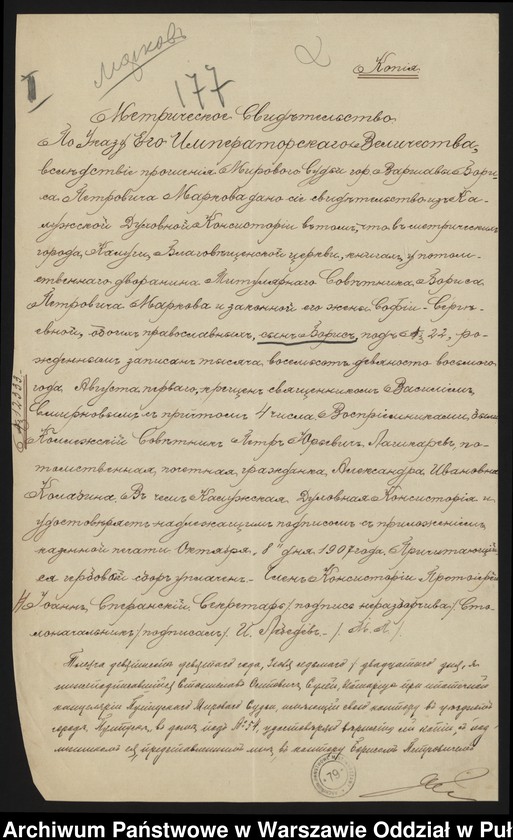 Марковъ
2
Копія
II
177
Метрическое Свидѣтельство.
По Указу Его Императорскаго Величества,
вслѣдствіе прошенія Мирового Судьи гор. Варшавы Бори-
са Петровича Маркова дано сіе свидѣтельство изъ Ка-
лужской Духовной Консисторіи въ томъ, что въ метрическихъ
города Калуги, Благовѣщенской церкви, книгахъ у потом-
ственнаго дворянина Титулярнаго Совѣтника Бориса
Петровича Маркова и законной его жены Софіи Серге-
евной, обоихъ православныхъ, сынъ Борисъ, подъ № 22, ро-
жденнымъ записанъ тысяча восемьсотъ девяносто восьмого
года Августа перваго, крещенъ священникомъ Василіемъ
Смирновымъ съ причтомъ 4 числа. Воспріемниками были
Коллежскій Совѣтникъ Петръ Юрьевичъ Лашкаревъ, по-
томственная почетная гражданка Александра Ивановна
Въ чемъ Калужская Духовная Консисторія и
удостовѣряетъ надлежащимъ подписомъ съ приложеніемъ
казенной печати Октября, 8 дня 1907 года. Причитающій-
ся гербовой сборъ уплаченъ. Членъ Консисторіи Протоіерей
Іоаннъ Странскій. Секретарь /подпись неразборчива/ Сто-
лоначальникъ /подписалъ/ И. Лебедевъ. / М. П. /
Тысяча девятьсотъ девятаго года, /двадцатаго дня, я
нижеподписавшійся Станиславъ Нотаріусъ при ипотечной
канцеляріи Мирового Суда, имѣющій свою контору въ уѣздномъ
городѣ въ домѣ подъ № 54, удостовѣряю вѣрность сей копіи съ под-
линникомъ ея, представленнымъ мнѣ въ контору Борисомъ Петровичемъ
79
Archiwum Państwowe w Warszawie Oddział w Puł